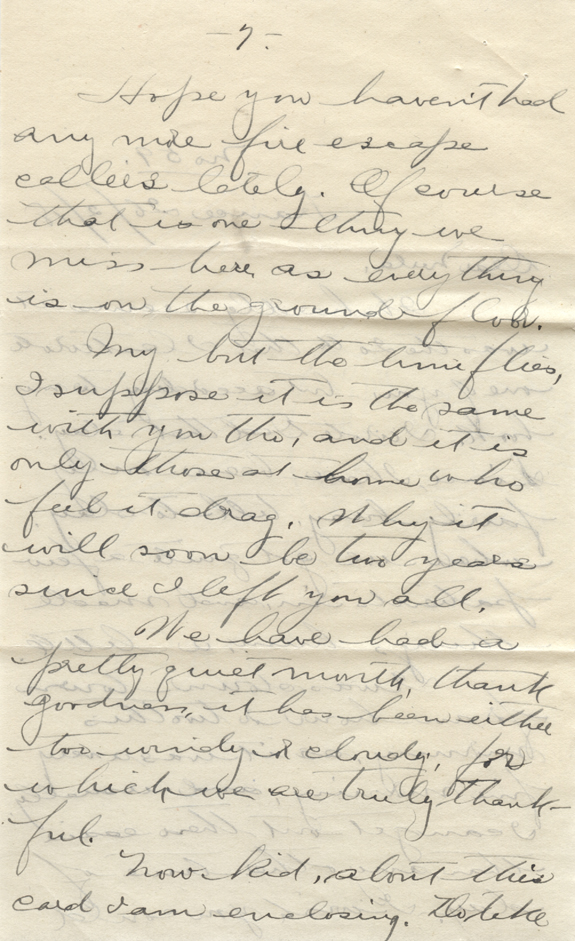 -7-
Hope you haven't had
any more fire escape
callers lately. Of course
that is one thing we
miss here, as everything
is on the ground floor.
My but the time flies,
I suppose it is the same
with you tho, and it is
only those at home who
feel it drag. Why it
will soon be two years
since I left you all.
We have had a
pretty quiet month, thank
goodness, it has been either
too windy or cloudy, for
which we are truly thank-
ful.
Now kid, about this
card I am enclosing.